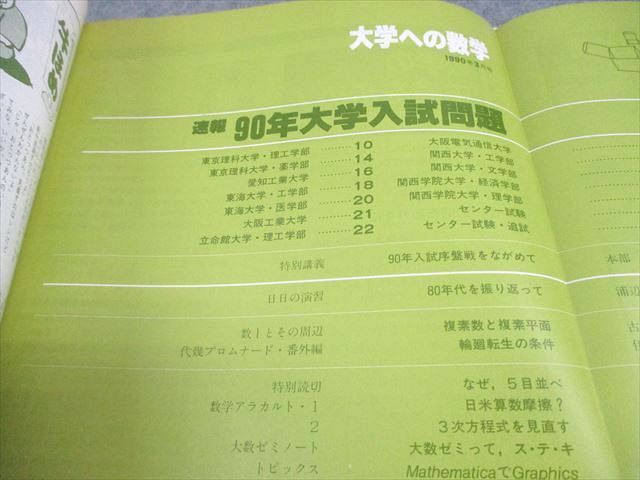 大学への数学
1990年3月号
速報 90年大学入試問題
東京理科大学・理工学部 ……… 10
東京理科大学・薬学部 ……… 14
愛知工業大学 ……… 16
東海大学・工学部 ……… 18
東海大学・医学部 ……… 20
大阪工業大学 ……… 21
立命館大学・理工学部 ……… 22
大阪電気通信大学
関西大学・工学部
関西大学・文学部
関西学院大学・経済学部
関西学院大学・理学部
センター試験
センター試験・追試
特別講義 90年入試序盤戦をながめて 本部
日日の演習 80年代を振り返って 浦辺
数Ⅰとその周辺 複素数と複素平面 古
代幾プロムナード・番外編 輪廻転生の条件
特別読切 なぜ,5目並べ
数学アラカルト・1 日米算数摩擦?
2 3次方程式を見直す
大数ゼミノート 大数ゼミって,ス・テ・キ
トピックス MathematicaでGraphics